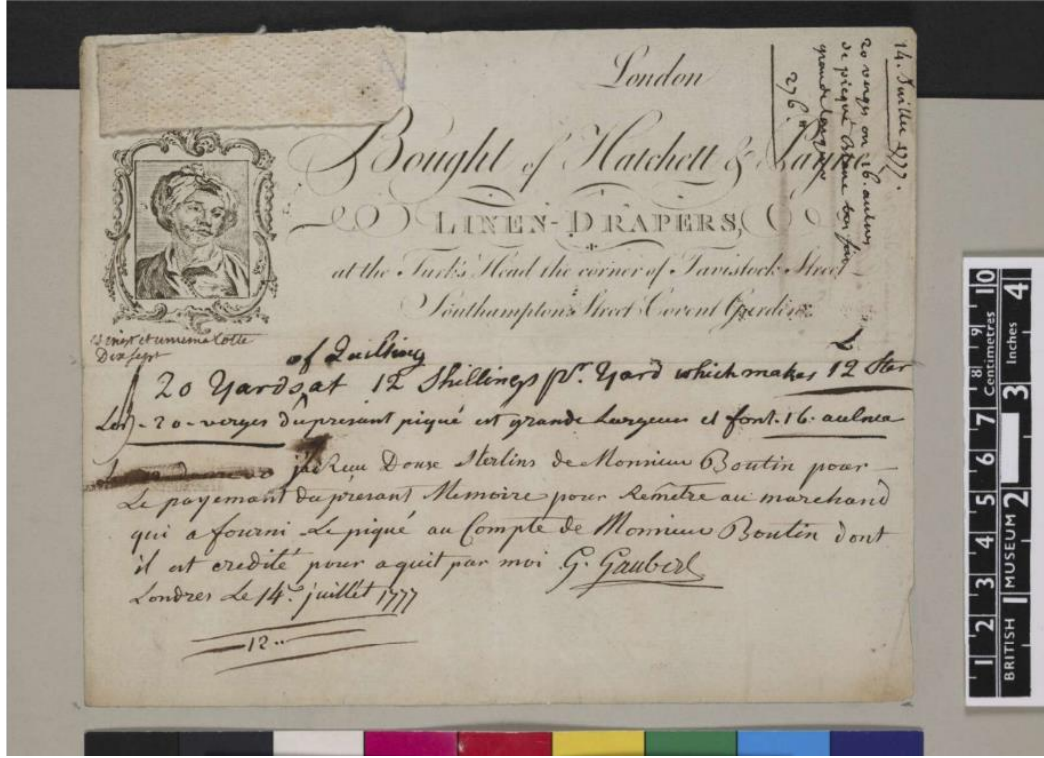 London
Bought of Hatchett &
LINEN-DRAPERS,
at the Turk's Head the corner of Tavistock Street
Southampton Street Covent Garden
14. Juillet 1777.
20 verges ou 16. aulnes
de picqué
grande largeur
276.#
Dix sept
of Quilting
20 Yards at 12 Shillings pr. Yard which makes 12 Ster
Les - 20 - verges du présant piqué est grande Largeur et font - 16 - aulnes
j'ai Reçu Douse Sterlins de Monsieur Boutin pour
Le payemant du présant Memoire pour Remetre au marchand
qui a fourni Le piqué au Compte de Monsieur Boutin dont
il est credité pour aquit par moi G. Gaubert
Londres Le 14. juillet 1777
12
Centimetres
1 2 3 4 5 6 7 8 9 10
BRITISH MUSEUM
Inches
1 2 3 4